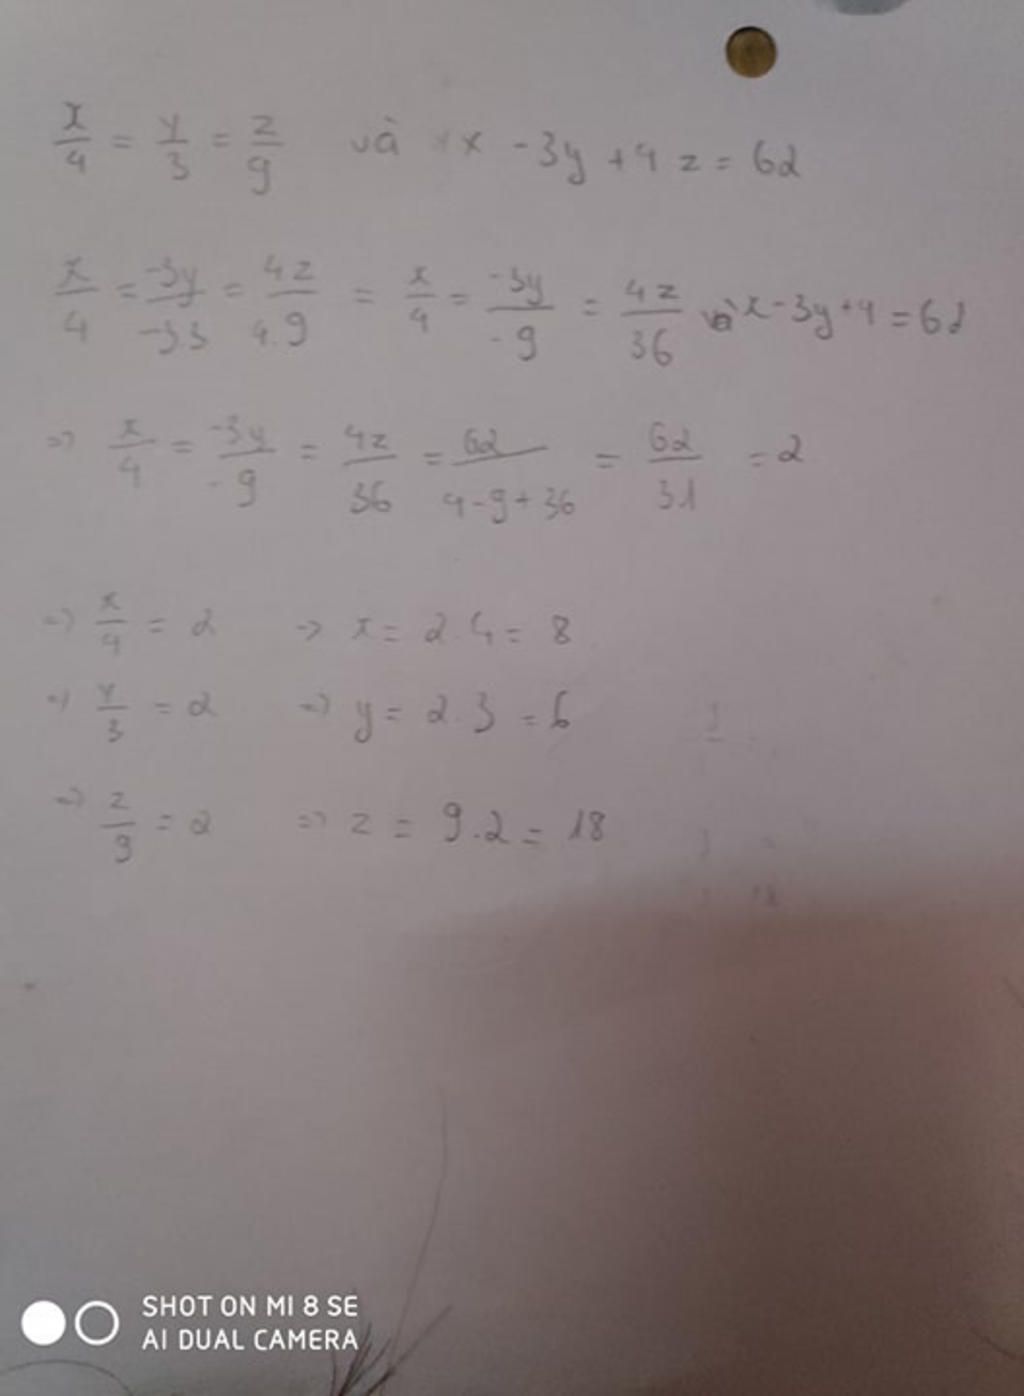 x/4 = y/3 = z/9 và x - 3y + 4z = 62
x/4 = -3y/-3.3 = 4z/4.9 = x/4 = -3y/-9 = 4z/36 và x - 3y + 4 = 62
=> x/4 = -3y/-9 = 4z/36 = 62/4-9+36 = 62/31 = 2
=> x/4 = 2 => x = 2.4 = 8
=> y/3 = 2 => y = 2.3 = 6
=> z/9 = 2 => z = 9.2 = 18
SHOT ON MI 8 SE
AI DUAL CAMERA